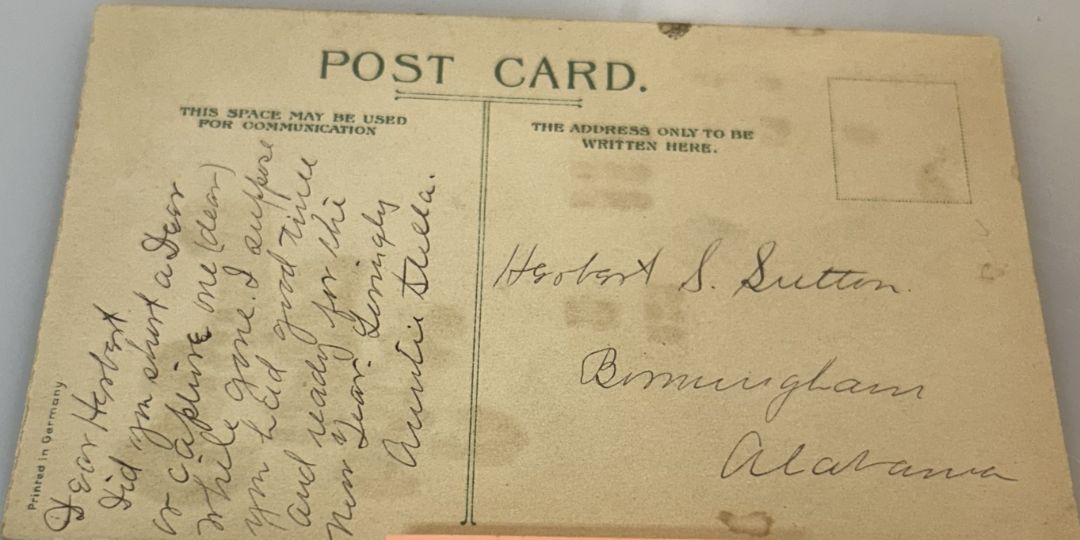 POST CARD.
THIS SPACE MAY BE USED
FOR COMMUNICATION
THE ADDRESS ONLY TO BE
WRITTEN HERE.
Dear Herbert
Did you shoot a Dear
or capture one (dear)
while gone. I suppose
you had good time
and ready for the
New Year. Lovingly
Auntie Stella.
Herbert S. Sutton.
Birmingham
Alabama
Printed in Germany